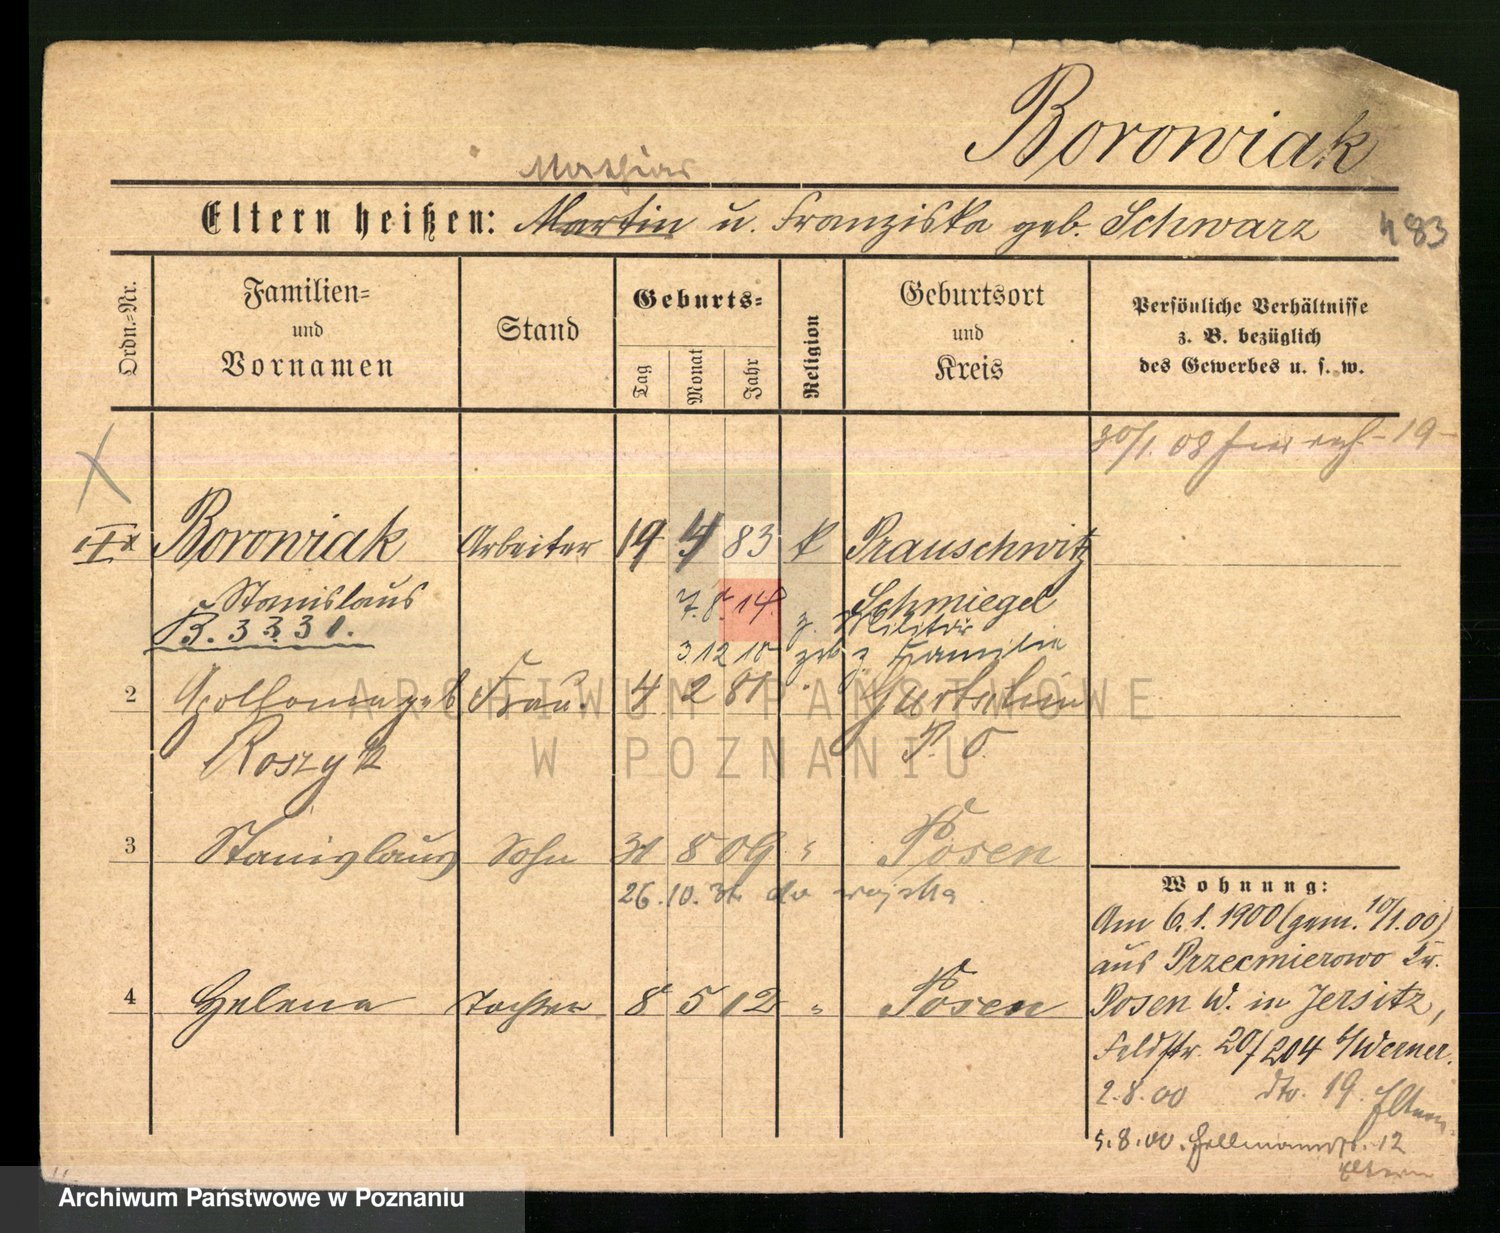 Borowiak
Mathias
Eltern heißen: Martin u. Franziska geb. Schwarz
483
Ordn.=Nr.
Familien=
und
Vornamen
Stand
Geburts=
Tag
Monat
Jahr
Religion
Geburtsort
und
Kreis
Persönliche Verhältnisse
z. B. bezüglich
des Gewerbes u. s. w.
30/1. 08 -19-
Borowiak Arbeiter 19 4 83 k Prauschwitz
Stanislaus 7. 8. 14. z. Militär Schmiegel
B. 3331.
3 12 18 z. Familie
2 geb Frau 4 2 81 " Gurtschin
Roszyk P. O.
3 Stanislaus Sohn 31 8 09 " Posen
26.10.31 do wojska
4 Helena Tochter 8 5 12 " Posen
Wohnung:
Am 6.1.1900 (gem. 10/1.00)
aus Przecmierowo Kr.
Posen W. in Jersitz,
Feldstr. 20/204 b/Werner.
2.8.00 dto. 19. Eltern
5.8.00. Hellmannstr. 12
Eltern
ARCHIWUM PAŃSTWOWE
W POZNANIU
Archiwum Państwowe w Poznaniu